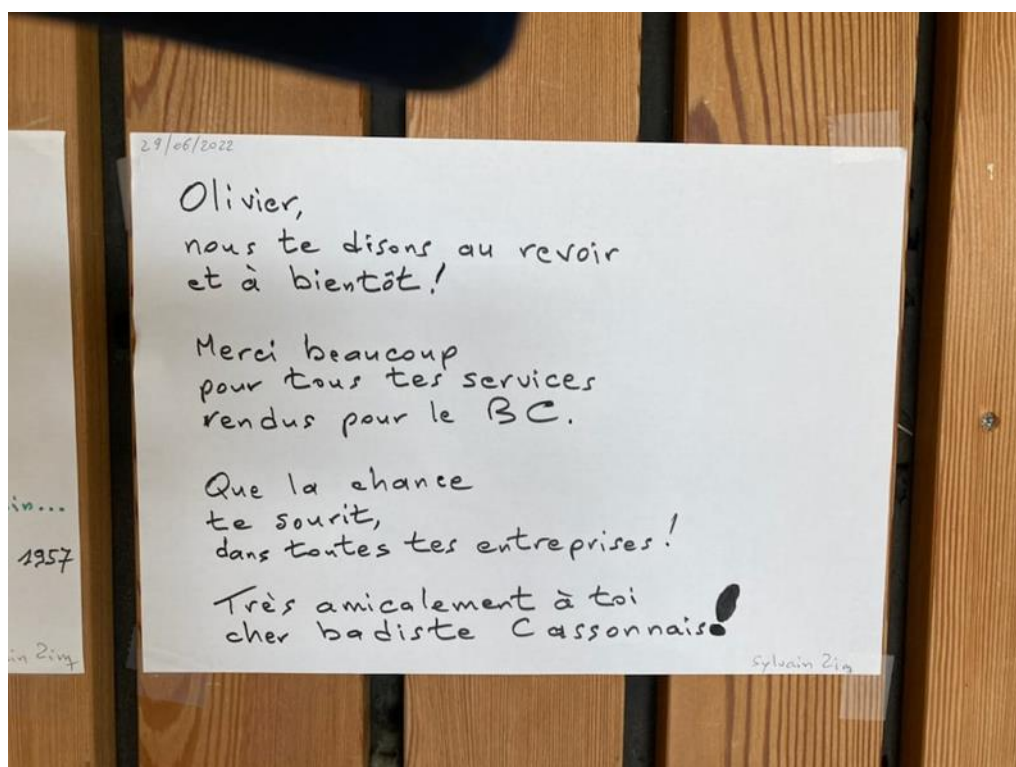 29/06/2022
Olivier,
nous te disons au revoir
et à bientôt!
Merci beaucoup
pour tous tes services
rendus pour le BC.
Que la chance
te sourit,
dans toutes tes entreprises!
Très amicalement à toi
cher badiste Cassonnais!
Sylvain Zim
in...
1957
in Zim